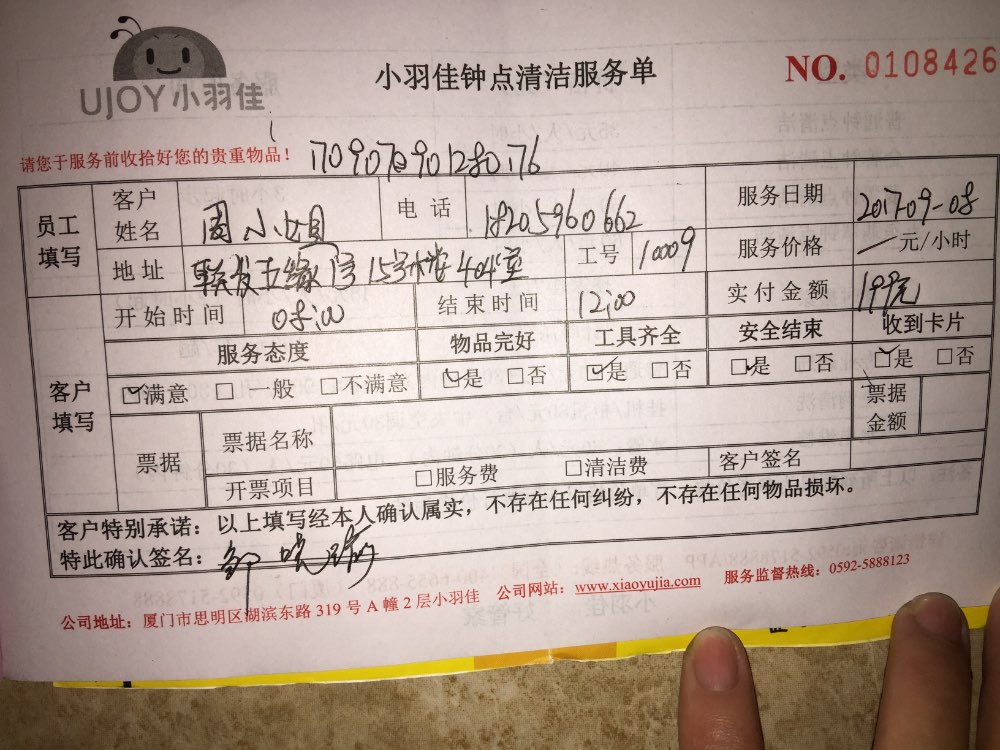 UJOY小羽佳
小羽佳钟点清洁服务单
NO. 0108426
请您于服务前收拾好您的贵重物品！
员工填写 客户姓名 周小姐 电话 18205960662 服务日期 2017-09-08
地址 联发五缘湾 15号楼404室 工号 10009 服务价格 一元/小时
开始时间 08:00 结束时间 12:00 实付金额 199元
客户填写 服务态度 物品完好 工具齐全 安全结束 收到卡片
满意 一般 不满意 是 否 是 否 是 否 是 否
票据 票据名称 票据金额
开票项目 服务费 清洁费 客户签名
客户特别承诺：以上填写经本人确认属实，不存在任何纠纷，不存在任何物品损坏。
特此确认签名：
公司地址：厦门市思明区湖滨东路 319 号 A 幢 2 层小羽佳 公司网站：www.xiaoyujia.com 服务监督热线：0592-5888123